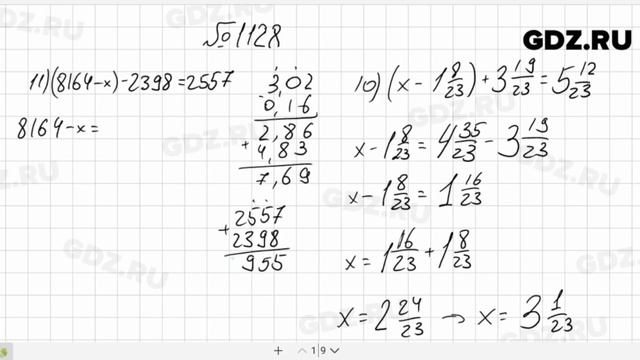 № 1128
GDZ.RU
11) (8164-x)-2398=2557
8164-x=
3,02
0,16
2,86
+ 4,83
7,69
+ 2557
2398
955
10) (x - 1 8/23) + 3 19/23 = 5 12/23
x - 1 8/23 = 4 35/23 - 3 19/23
x - 1 8/23 = 1 16/23
x = 1 16/23 + 1 8/23
x = 2 24/23 → x = 3 1/23
1 | 9